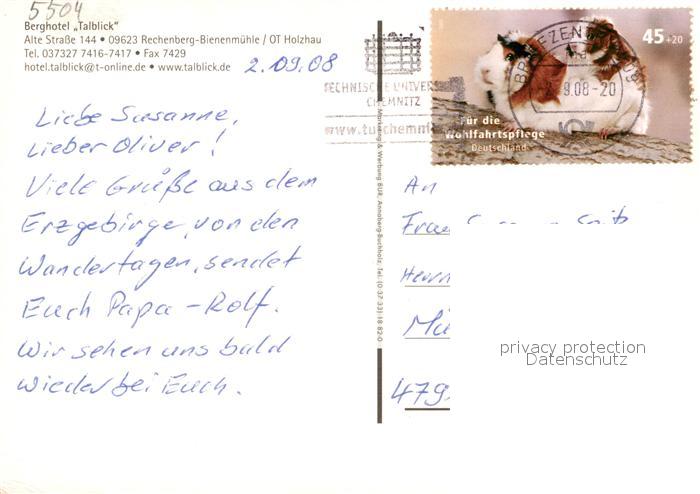 5504
Berghotel „Talblick"
Alte Straße 144 • 09623 Rechenberg-Bienenmühle / OT Holzhau
Tel. 037327 7416-7417 • Fax 7429
hotel.talblick@t-online.de • www.talblick.de
2.09.08
Liebe Susanne,
Lieber Oliver!
Viele Grüße aus dem
Erzgebirge, von den
Wandertagen, sendet
Euch Papa - Rolf.
Wir sehen uns bald
wieder bei Euch.
TECHNISCHE UNIVERS
CHEMNITZ
www.tu-chemni
BRIEFZEN
9.08-20
45+20
Für die
Wohlfahrtspflege
Deutschland
& Werbung BUR, Annaberg-Buchholz, Tel. (0 37 33) 18 82-0
An
Frau
Herrn
479
privacy protection
Datenschutz